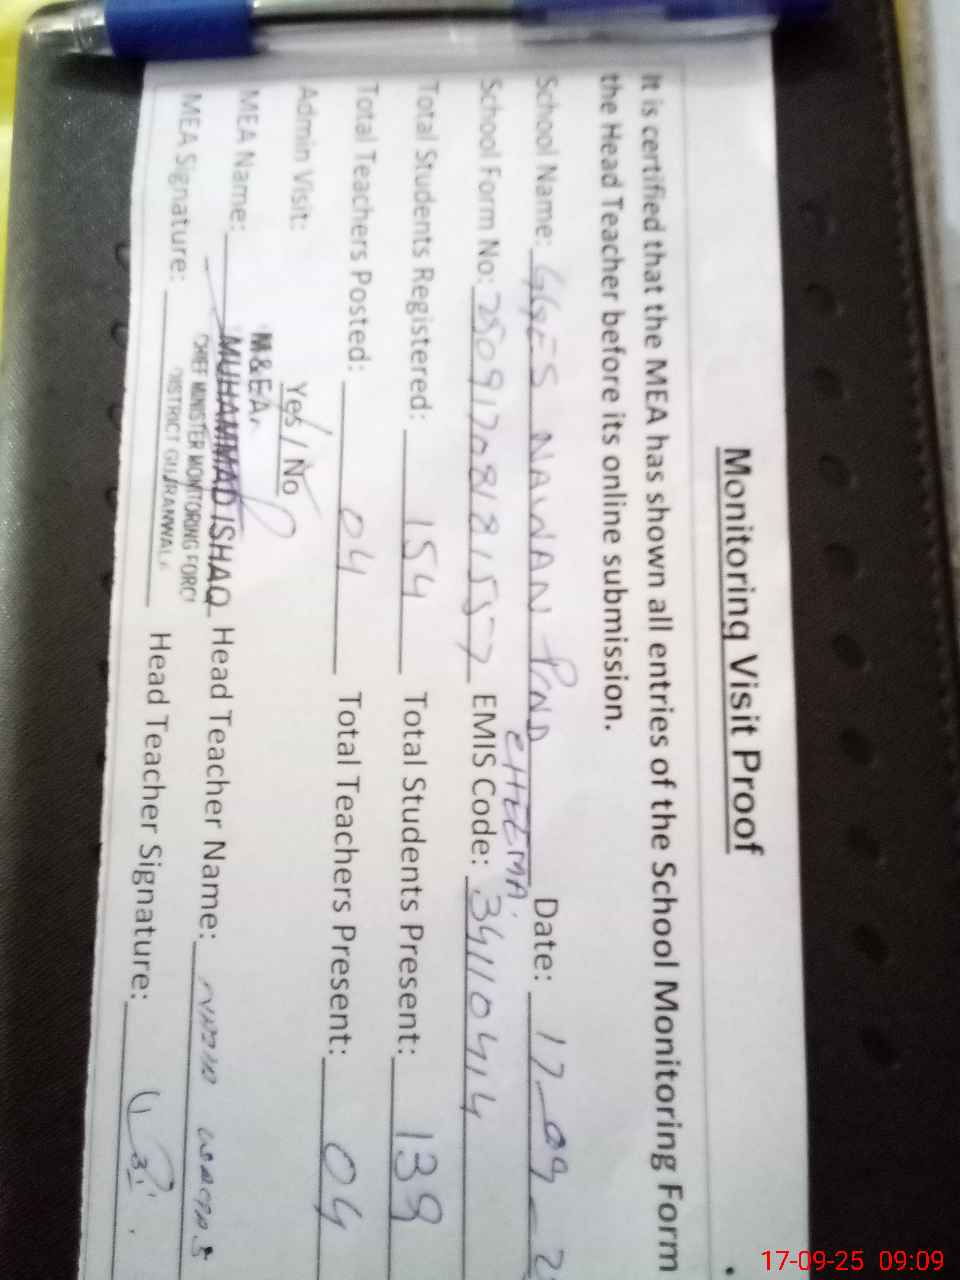 Monitoring Visit Proof
It is certified that the MEA has shown all entries of the School Monitoring Form
the Head Teacher before its online submission.
School Name: GGES NAWAN PIND CHEEMA. Date: 17-09-2
School Form No: EMIS Code: 34110414
Total Students Registered: 154 Total Students Present: 139
Total Teachers Posted: 04 Total Teachers Present: 04
Admin Visit: Yes / No
M&EA
MEA Name: MUHAMMAD ISHAQ Head Teacher Name:
CHIEF MINISTER MONITORING FORCE
DISTRICT GUJRANWALA
MEA Signature: Head Teacher Signature:
17-09-25 09:09